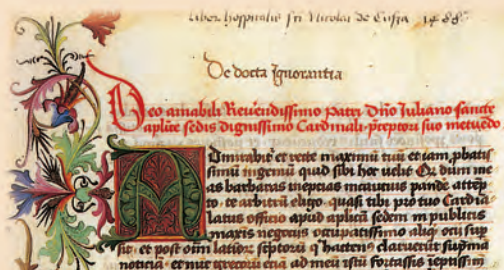 Liber hospitalis sti Nicolai de Cusza 1488
De docta Ignorantia
Deo amabili Reuendissimo patri dno Iuliano sancte
aplice sedis dignissimo Cardinali preptori suo metuedo
Admirabit et recte maximu tuu et iam pbatis
simu ingeniu quid sibi hoc velit Qd dum me
as barbaras ineptias incautius pande attep
to te arbitru eligo quasi tibi pro tuo Cardia
latus officio apud aplica sedem in publicis
maxis negocijs occupatissimo aliq ocii sup
sit et post oim latior scptoru q hacten9 clarueriut supma
noticia et nuc grecoru etia ad meu istu fortassis ieptissim